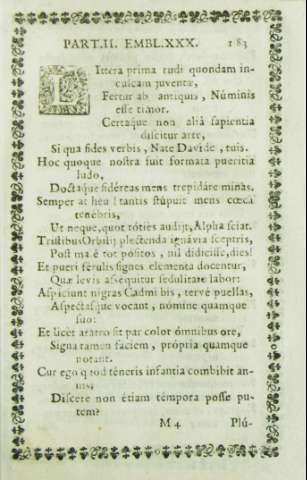 PART.II. EMBL.XXX. 183
Littera prima rudi quondam in-
culcam juventæ,
Fertur ab antiquis, Núminis
esse timor.
Certaque non aliâ sapientia
discitur arte,
Si qua fides verbis, Nate Davide, tuis.
Hoc quoque nostra fuit formata pueritia
ludo,
Doctaque sidéreas mens trepidáre minas.
Semper at heu! tantis stúpuit mens cœca
tenebris,
Ut neque, quot tóties audijt, Alpha sciat.
Tristibus Orbilij plectenda ignávia sceptris,
Post mâ è tot pósitos, nil didicisse, dies!
Et pueri férulis signes elementa docentur,
Quæ levis assequitur sedulitate labor:
Aspíciunt nigras Cadmi bis, tervè puellas,
Aspectasque vocant, nómine quamque
suo:
Et licet aratro sit par color ómnibus ore,
Signa tamen fáciem, própria quamque
notant.
Cur ego quod téneris infantia combibit an-
nis,
Discere non étiam témpora posse pu-
tem?
M 4 Plú-